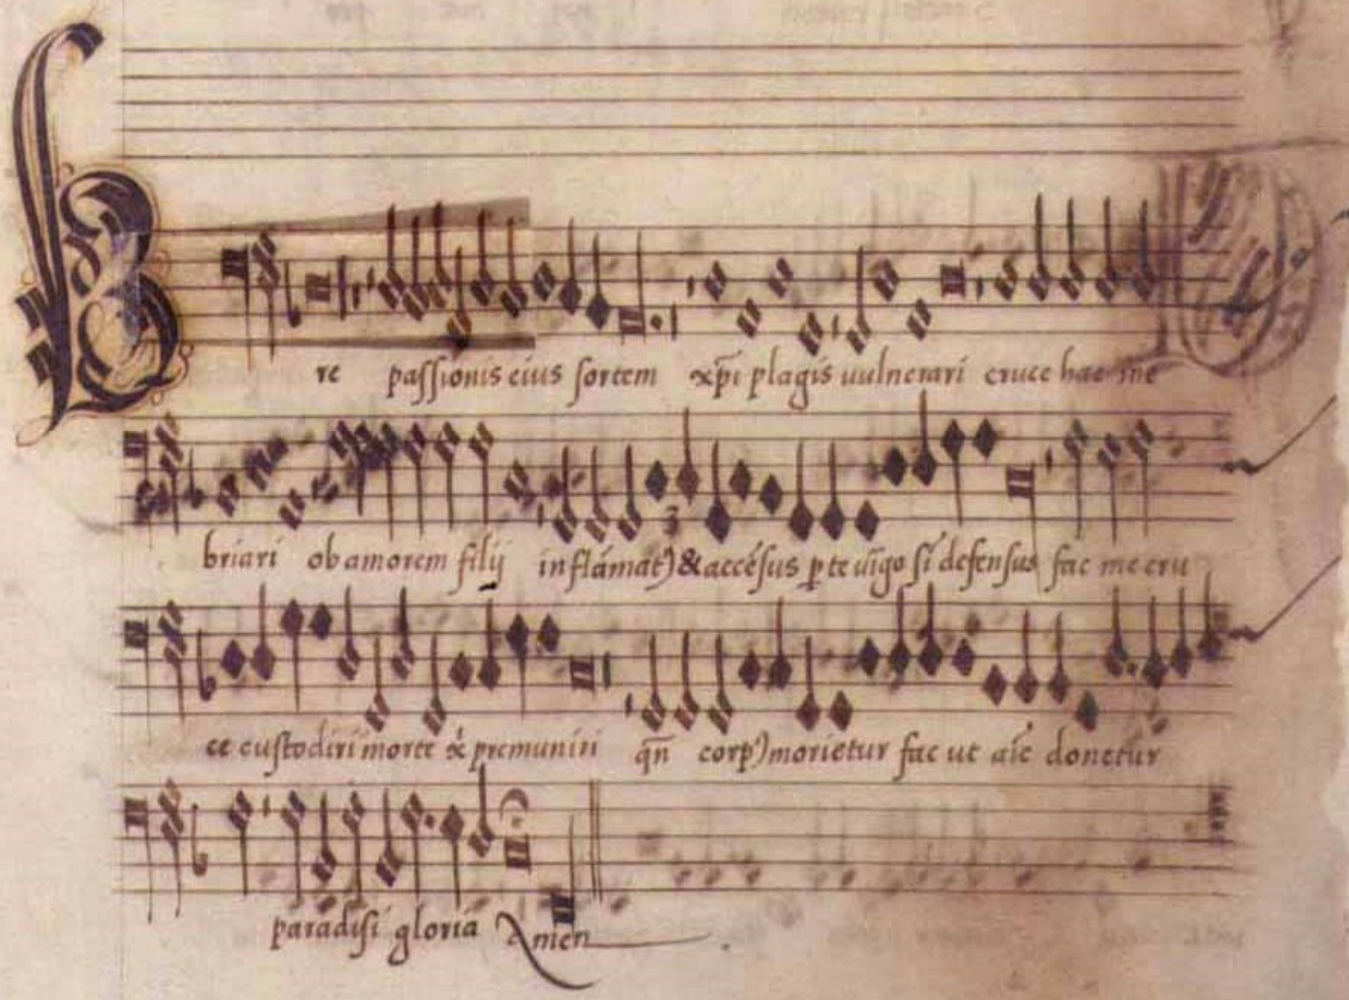 B
re passionis eius sortem xp̄i plagis uulnerari cruce hac me
briari ob amorem filij inflāmat) & accēsus p te uīgo sī defensus fac me cru
ce custodiri morte x̄p̄i premuniri qn̄ corp) morietur fac ut aīe donetur
paradisi gloria Amen